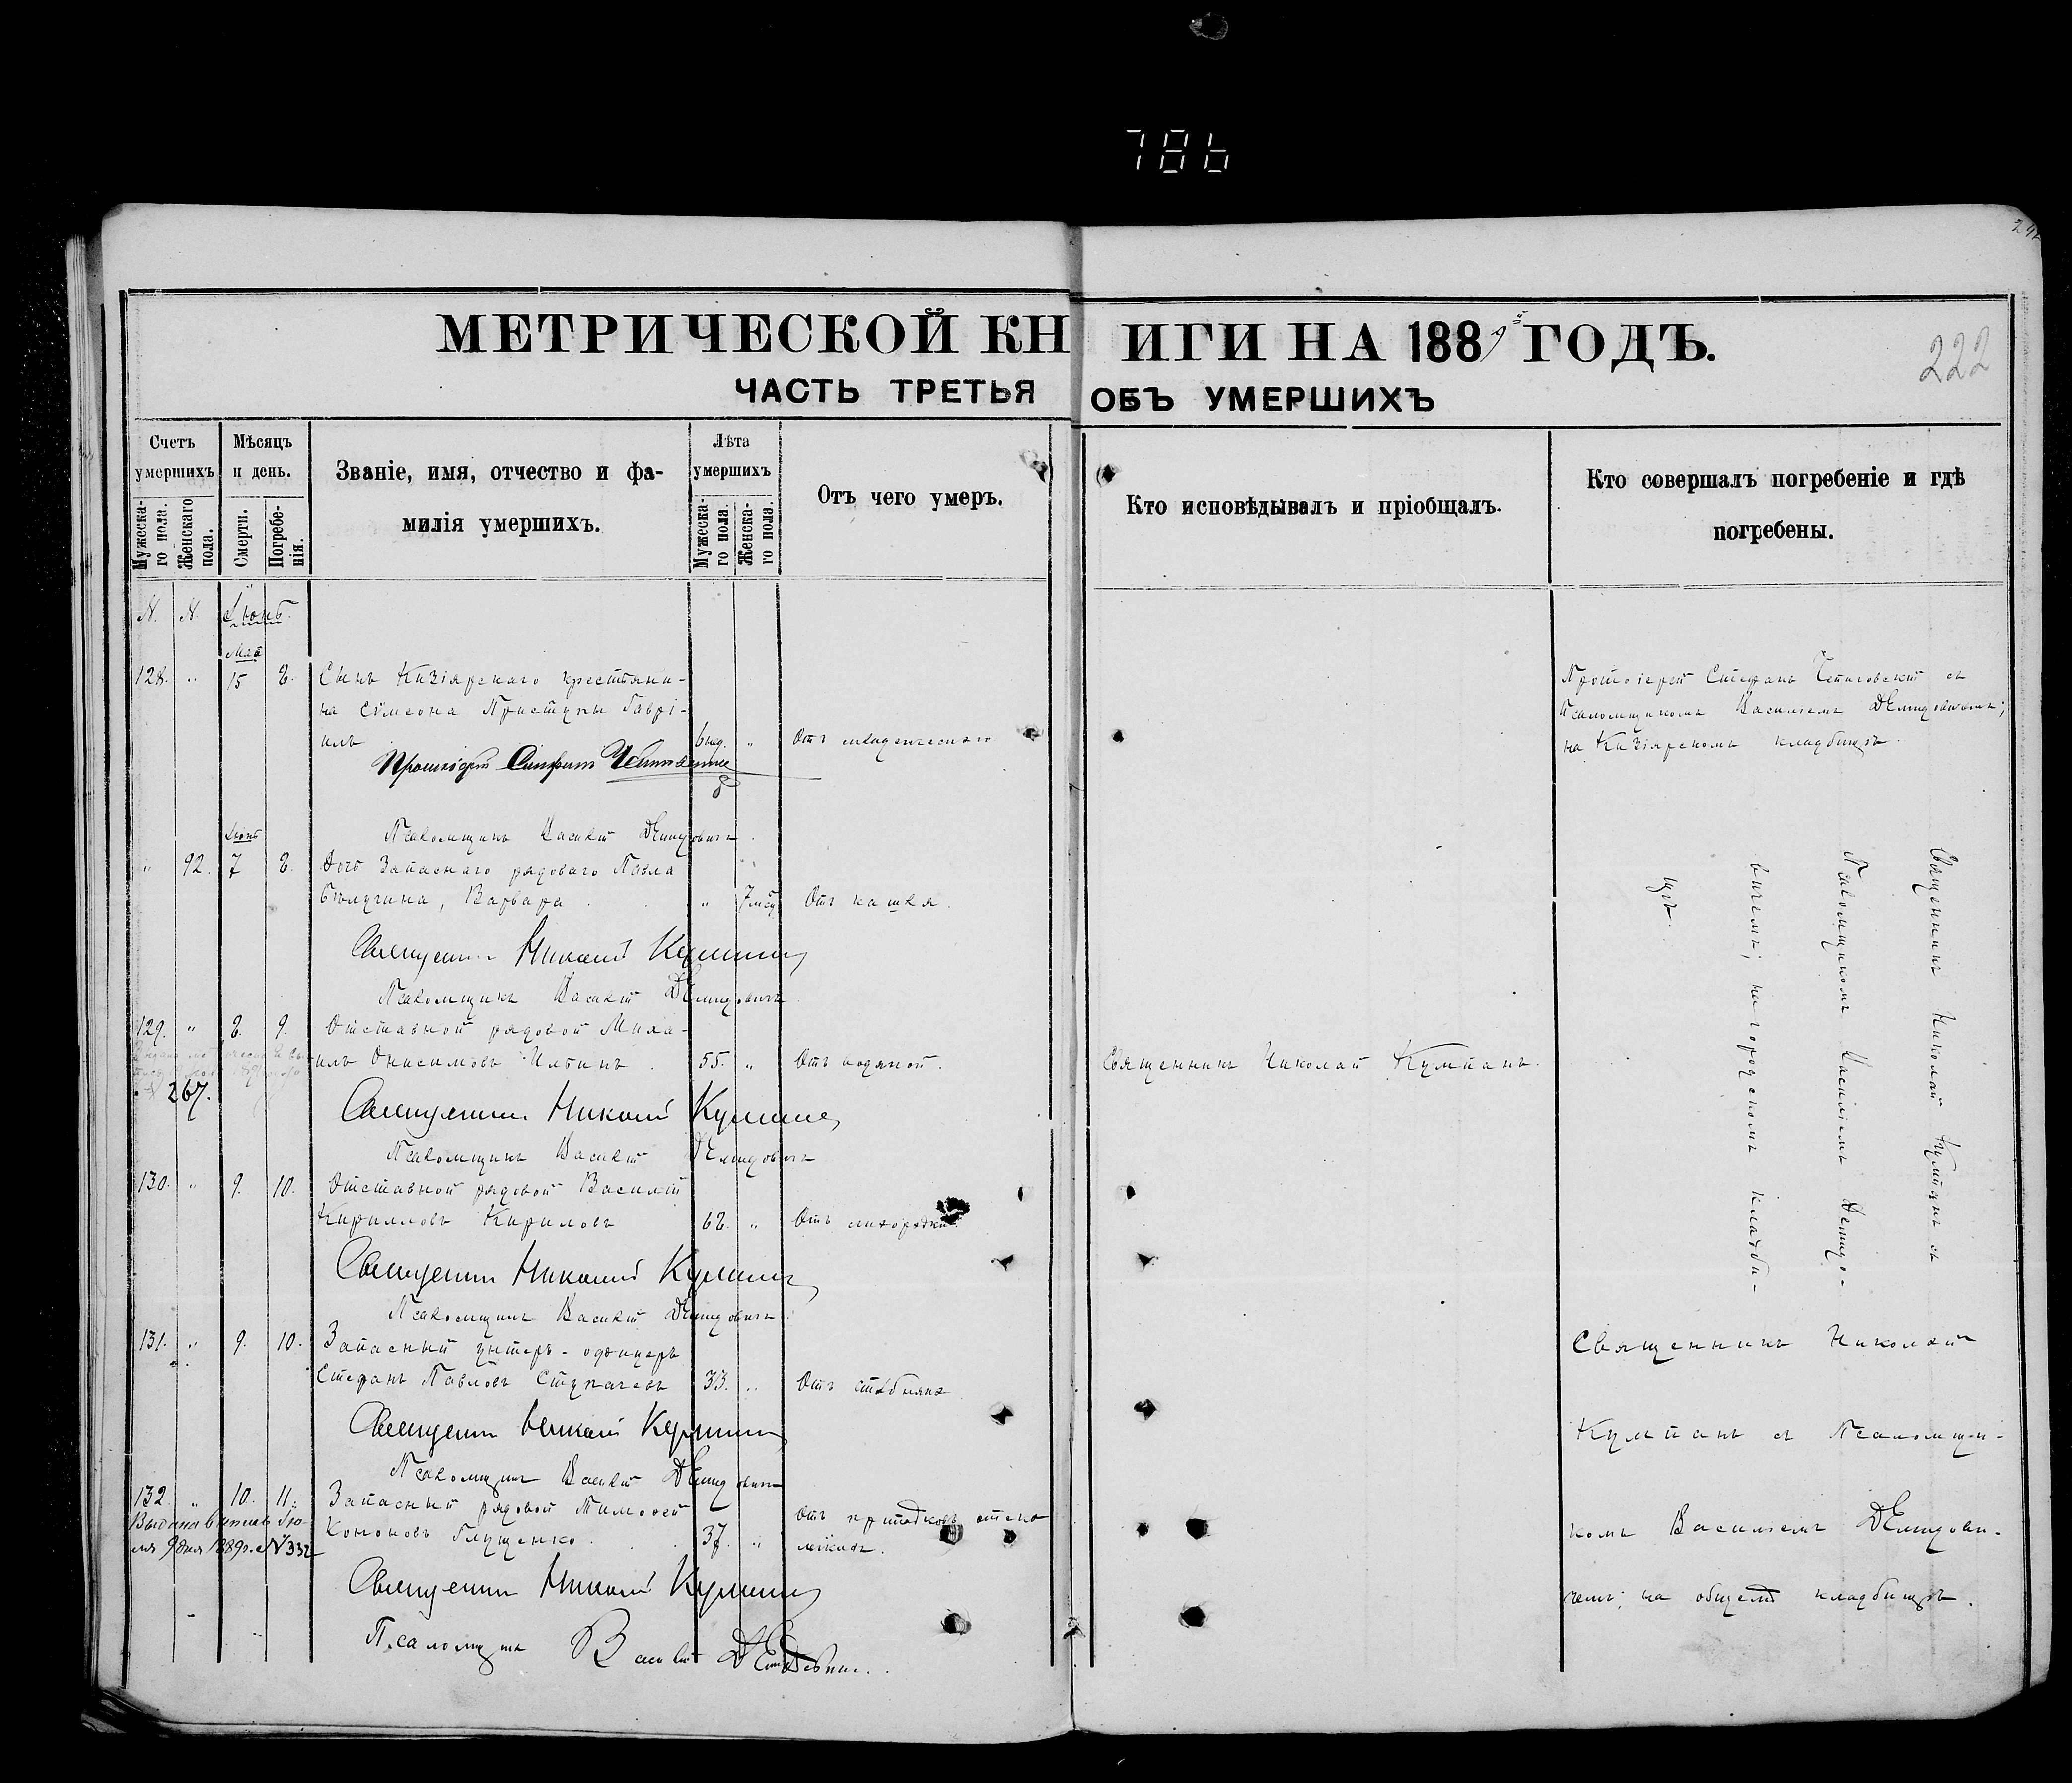 786
292
МЕТРИЧЕСКОЙ КНИГИ НА 1889й ГОДЪ.
222
ЧАСТЬ ТРЕТЬЯ ОБЪ УМЕРШИХЪ
Счетъ умершихъ
Мужеска-го пола.
Женскаго пола.
Мѣсяцъ и день.
Смерти.
Погребе-нія.
Званіе, имя, отчество и фа-
милія умершихъ.
Лѣта умершихъ
Мужеска-го пола.
Женска-го пола.
Отъ чего умеръ.
Кто исповѣдывалъ и пріобщалъ.
Кто совершалъ погребеніе и гдѣ
погребены.
N. N. Іюнь.
Май
128. " 15 8. Сынъ Кизіярскаго крестьяни-
на Сѵмеона Приступы Гаврі-
илъ 6 нед. " Отъ младенческаго
Протоіерей Стефанъ
Псаломщикъ Василій Демидовичъ.
Протоіерей Стефанъ съ
Псаломщикомъ Василіемъ Демидовичемъ;
на Кизіярскомъ кладбищѣ.
Іюнь
" 92. 7 8. Дочь Запаснаго рядоваго Павла
Бѣлугина, Варвара. " 7 мѣс. Отъ кашля.
Священникъ Николай Кумпанъ
Псаломщикъ Василій Демидовичъ
129. " 8. 9. Отставной рядовой Миха-
илъ Онисимовъ Ильинъ. 55. " Отъ водяной. Священникъ Николай Кумпанъ.
№ 267.
Священникъ Николай Кумпанъ
Псаломщикъ Василій Демидовичъ
130. " 9. 10. Отставной рядовой Василій
Кирилловъ Кириловъ 68. " Отъ лихорадки.
Священникъ Николай Кумпанъ
Псаломщикъ Василій Демидовичъ.
Священникъ Николай Кумпанъ съ
Псаломщикомъ Василіемъ Демидо-
вичемъ; на городскомъ кладби-
щѣ.
131. " 9. 10. Запасный унтеръ-офицеръ
Стефанъ Павловъ 33. " Отъ столбняка
Священникъ Николай Кумпанъ
Псаломщикъ Василій Демидовичъ
132. " 10. 11. Запасный рядовой Тимоѳей
Кононовъ Глущенко. 37. " Отъ припадковъ
Выдана выпись Ію-
ля 9 дня 1889 г. №332
Священникъ Николай Кумпанъ
Псаломщикъ Василій Демидовичъ.
Священникъ Николай
Кумпанъ съ Псаломщи-
комъ Василіемъ Демидови-
чемъ; на общемъ кладбищѣ.